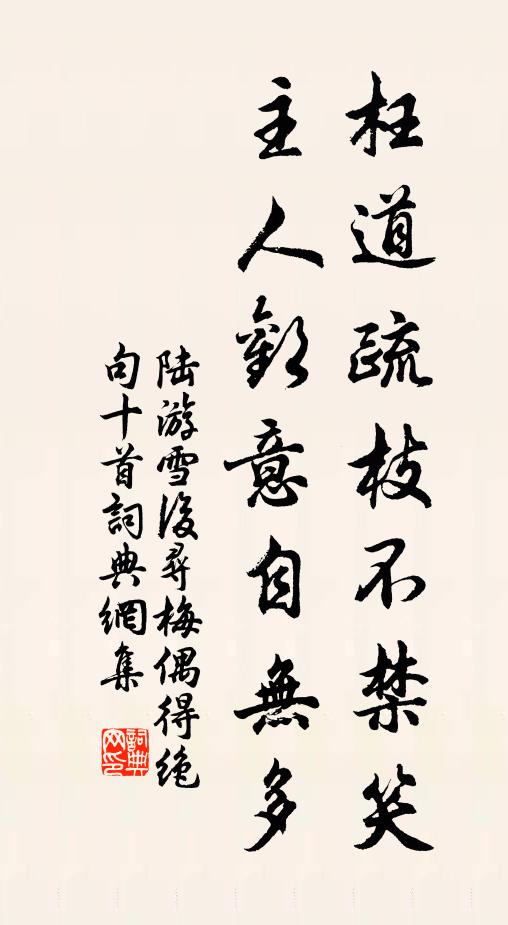 枉道疏枝不禁笑
主人歡意自無多
陸游雪後尋梅偶得絶
句十首詞典網集
詞典网印